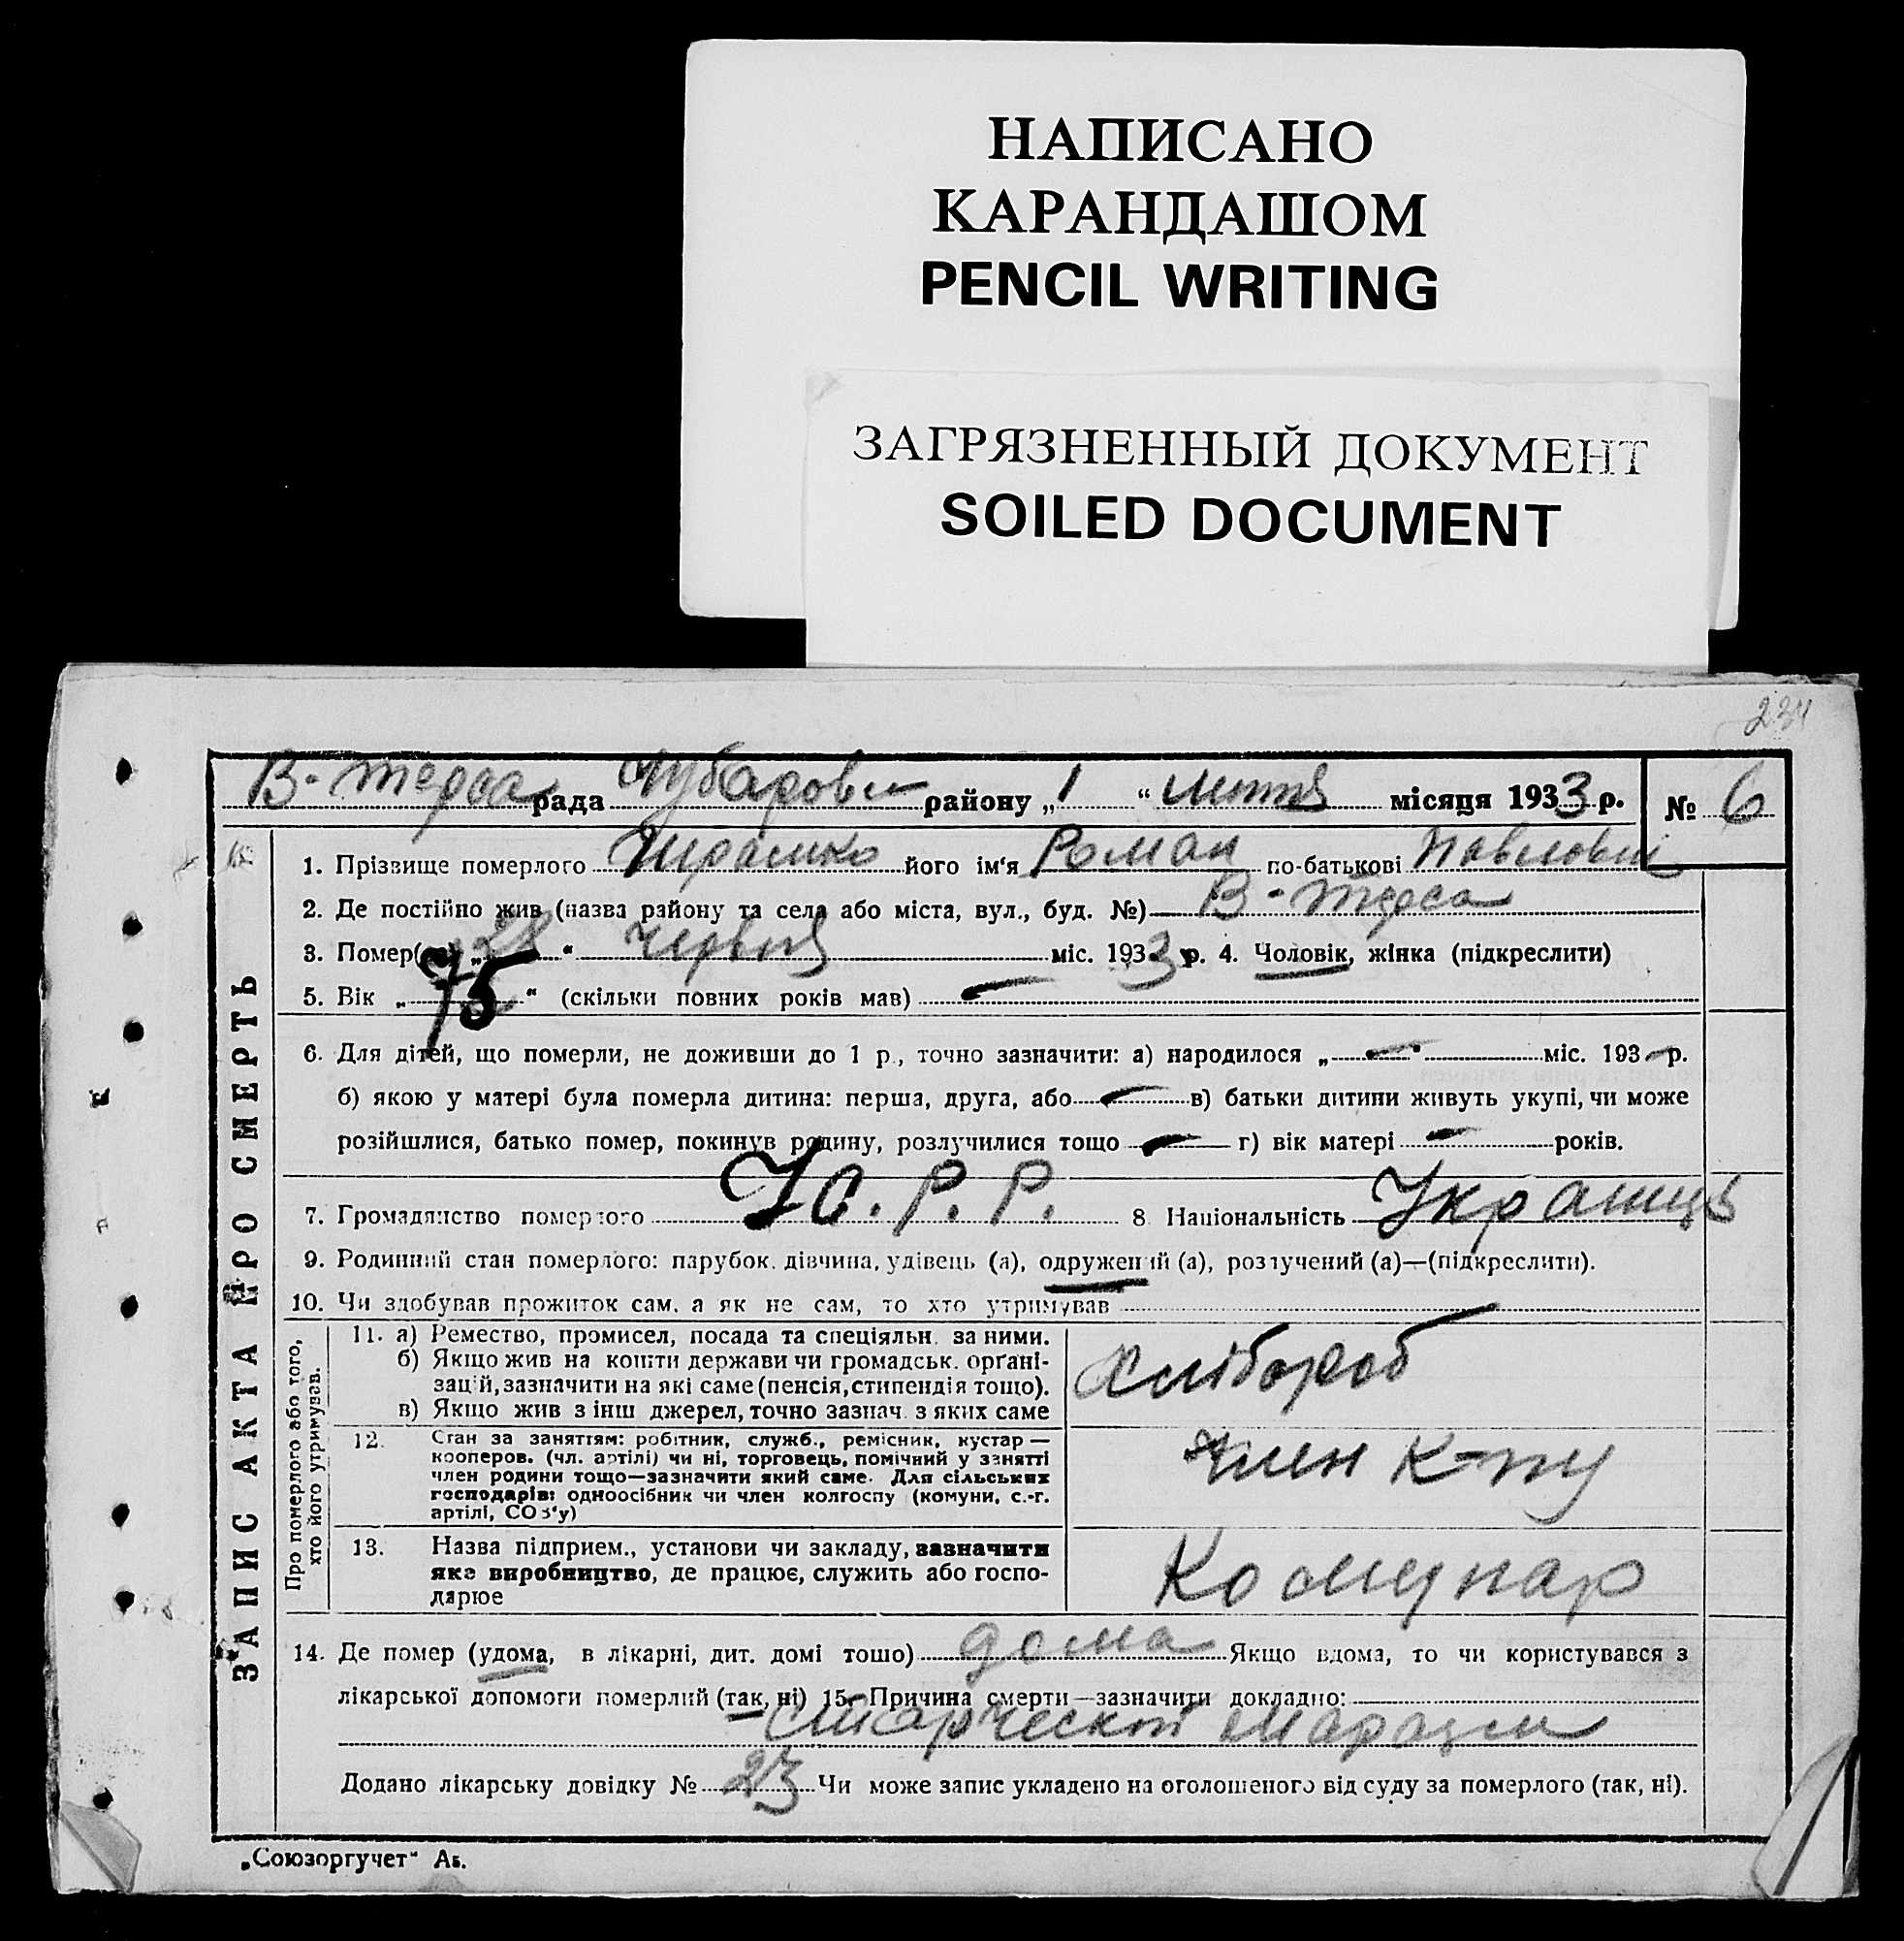 НАПИСАНО
КАРАНДАШОМ
PENCIL WRITING
ЗАГРЯЗНЕННЫЙ ДОКУМЕНТ
SOILED DOCUMENT
234
В-Терса рада Чубаровск району „1“ липня місяця 1933 р. № 6
ЗАПИС АКТА ПРО СМЕРТЬ
1. Прізвище померлого Шрамко його ім‘я Роман по-батькові Павлович
2. Де постійно жив (назва району та села або міста, вул., буд. №) В-Терса
3. Помер(ла) „28“ червня міс. 1933 р. 4. Чоловік, жінка (підкреслити)
5. Вік „75“ (скільки повних років мав) —
6. Для дітей, що померли, не доживши до 1 р., точно зазначити: а) народилося „—“ міс. 193— р.
б) якою у матері була померла дитина: перша, друга, або — в) батьки дитини живуть укупі, чи може
розійшлися, батько помер, покинув родину, розлучилися тощо — г) вік матері — років.
7. Громадянство померлого У.С.Р.Р. 8. Національність Украинць
9. Родинний стан померлого: парубок, дівчина, удівець (а), одружений (а), розлучений (а)—(підкреслити).
10. Чи здобував прожиток сам, а як не сам, то хто утримував —
Про померлого або того,
хто його утримував.
11. а) Ремество, промисел, посада та спеціяльн. за ними.
б) Якщо жив на кошти держави чи громадськ. орґані-
зацій, зазначити на які саме (пенсія, стипендія тощо).
в) Якщо жив з інш джерел, точно зазнач. з яких саме
Хлібороб
12. Стан за заняттям: робітник, служб., ремісник, кустар—
кооперов. (чл. артілі) чи ні, торговець, помічний у занятті
член родини тощо—зазначити який саме. Для сільських
господарів: одноосібник чи член колгоспу (комуни, с.-г.
артілі, СОЗ‘у)
член к-пу
13. Назва підприєм., установи чи закладу, зазначити
яке виробництво, де працює, служить або госпо-
дарює
Комунар
14. Де помер (удома, в лікарні, дит. домі тощо) дома Якщо вдома, то чи користувався з
лікарської допомоги померлий (так, ні) 15. Причина смерти—зазначити докладно:
Старческой
Додано лікарську довідку № 23 Чи може запис укладено на оголошеного від суду за померлого (так, ні).
„Союзоргучет“ Аб.